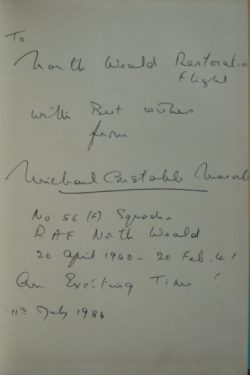 To
North Weald Restoration
Flight
with Best wishes
from
Michael Constable Maxwell
No 56 (F) Squadron
RAF North Weald
20 April 1940 - 20 Feb. 41
An Exciting Time!
11th July 1984